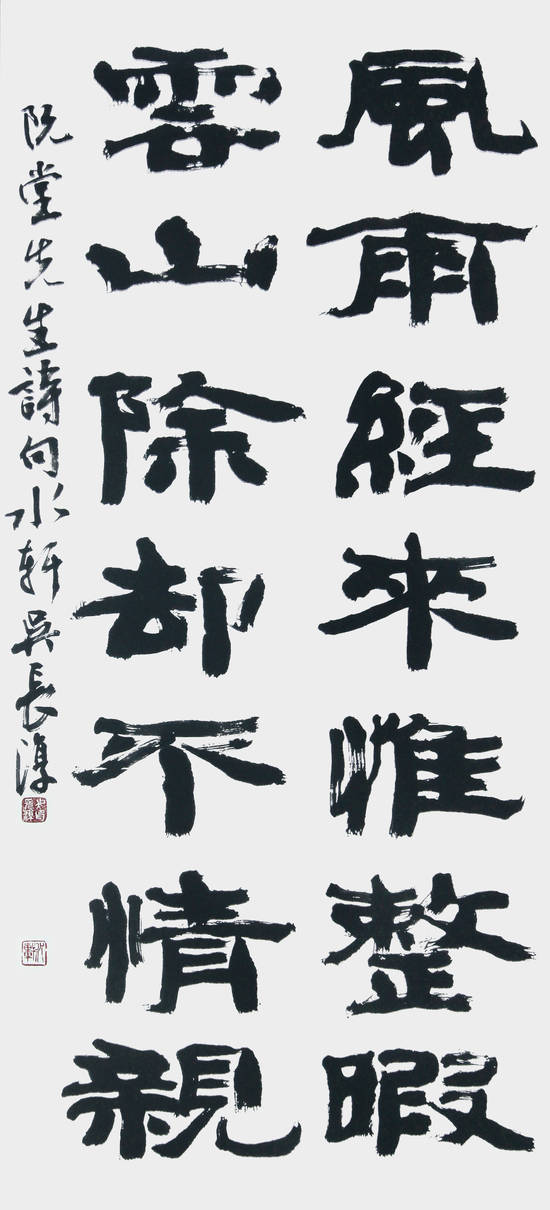 風雨經來惟整暇
雲山除却不情親
阮堂先生詩句水軒吳長淳